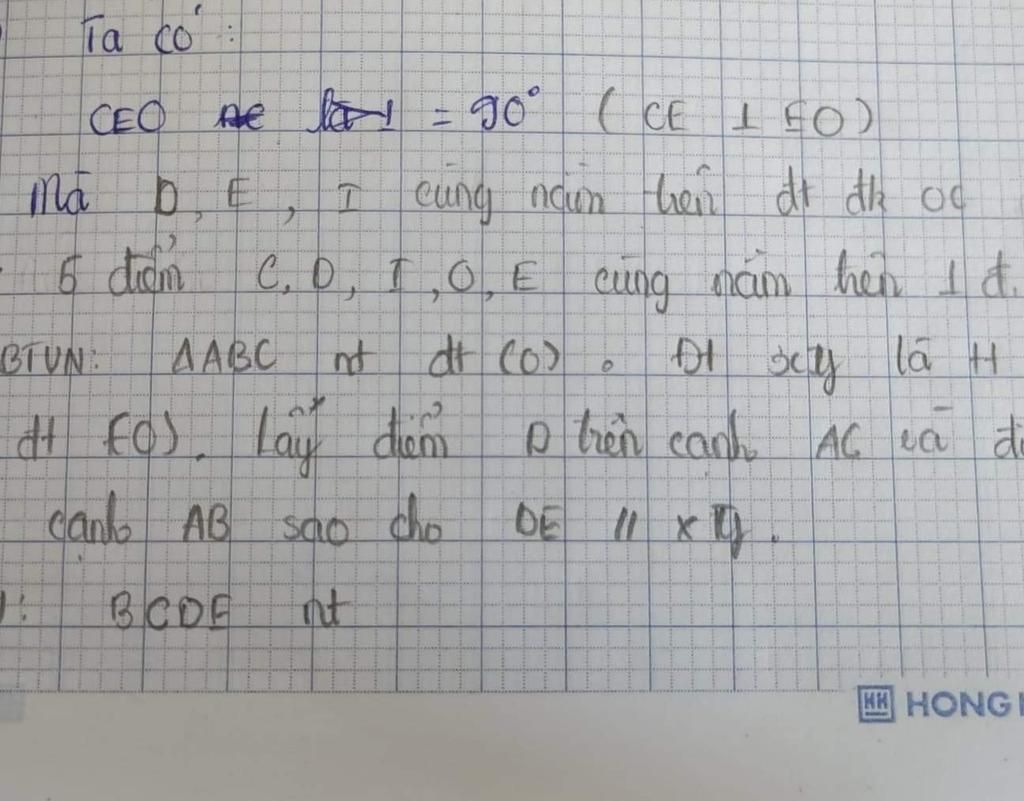 Ta có :
CEO = 90° ( CE ⊥ EO )
Mà D, E, I cùng nằm trên đt đk OC
5 điểm C, D, I, O, E cùng nằm trên 1 đ.
BTVN: ΔABC nt đt (O). Đt xy là tt
đt (O). Lấy điểm D trên cạnh AC và đi
cạnh AB sao cho DE // xy.
: BCDE nt
HONG